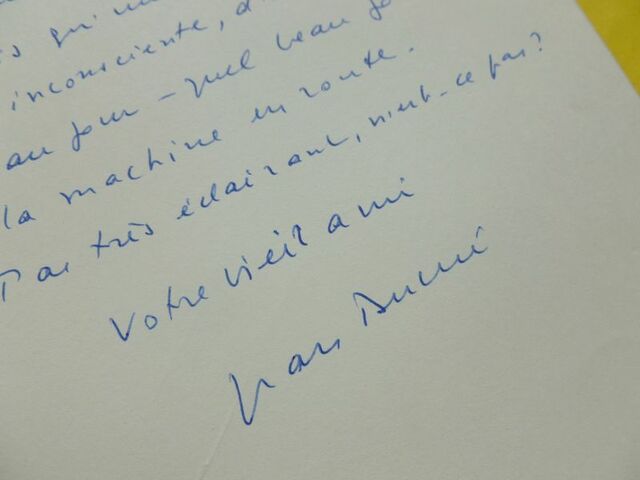 qui
inconsciente, d'
au jour – quel beau
la machine en route.
Pas très éclairant, n'est-ce pas?
Votre vieil ami